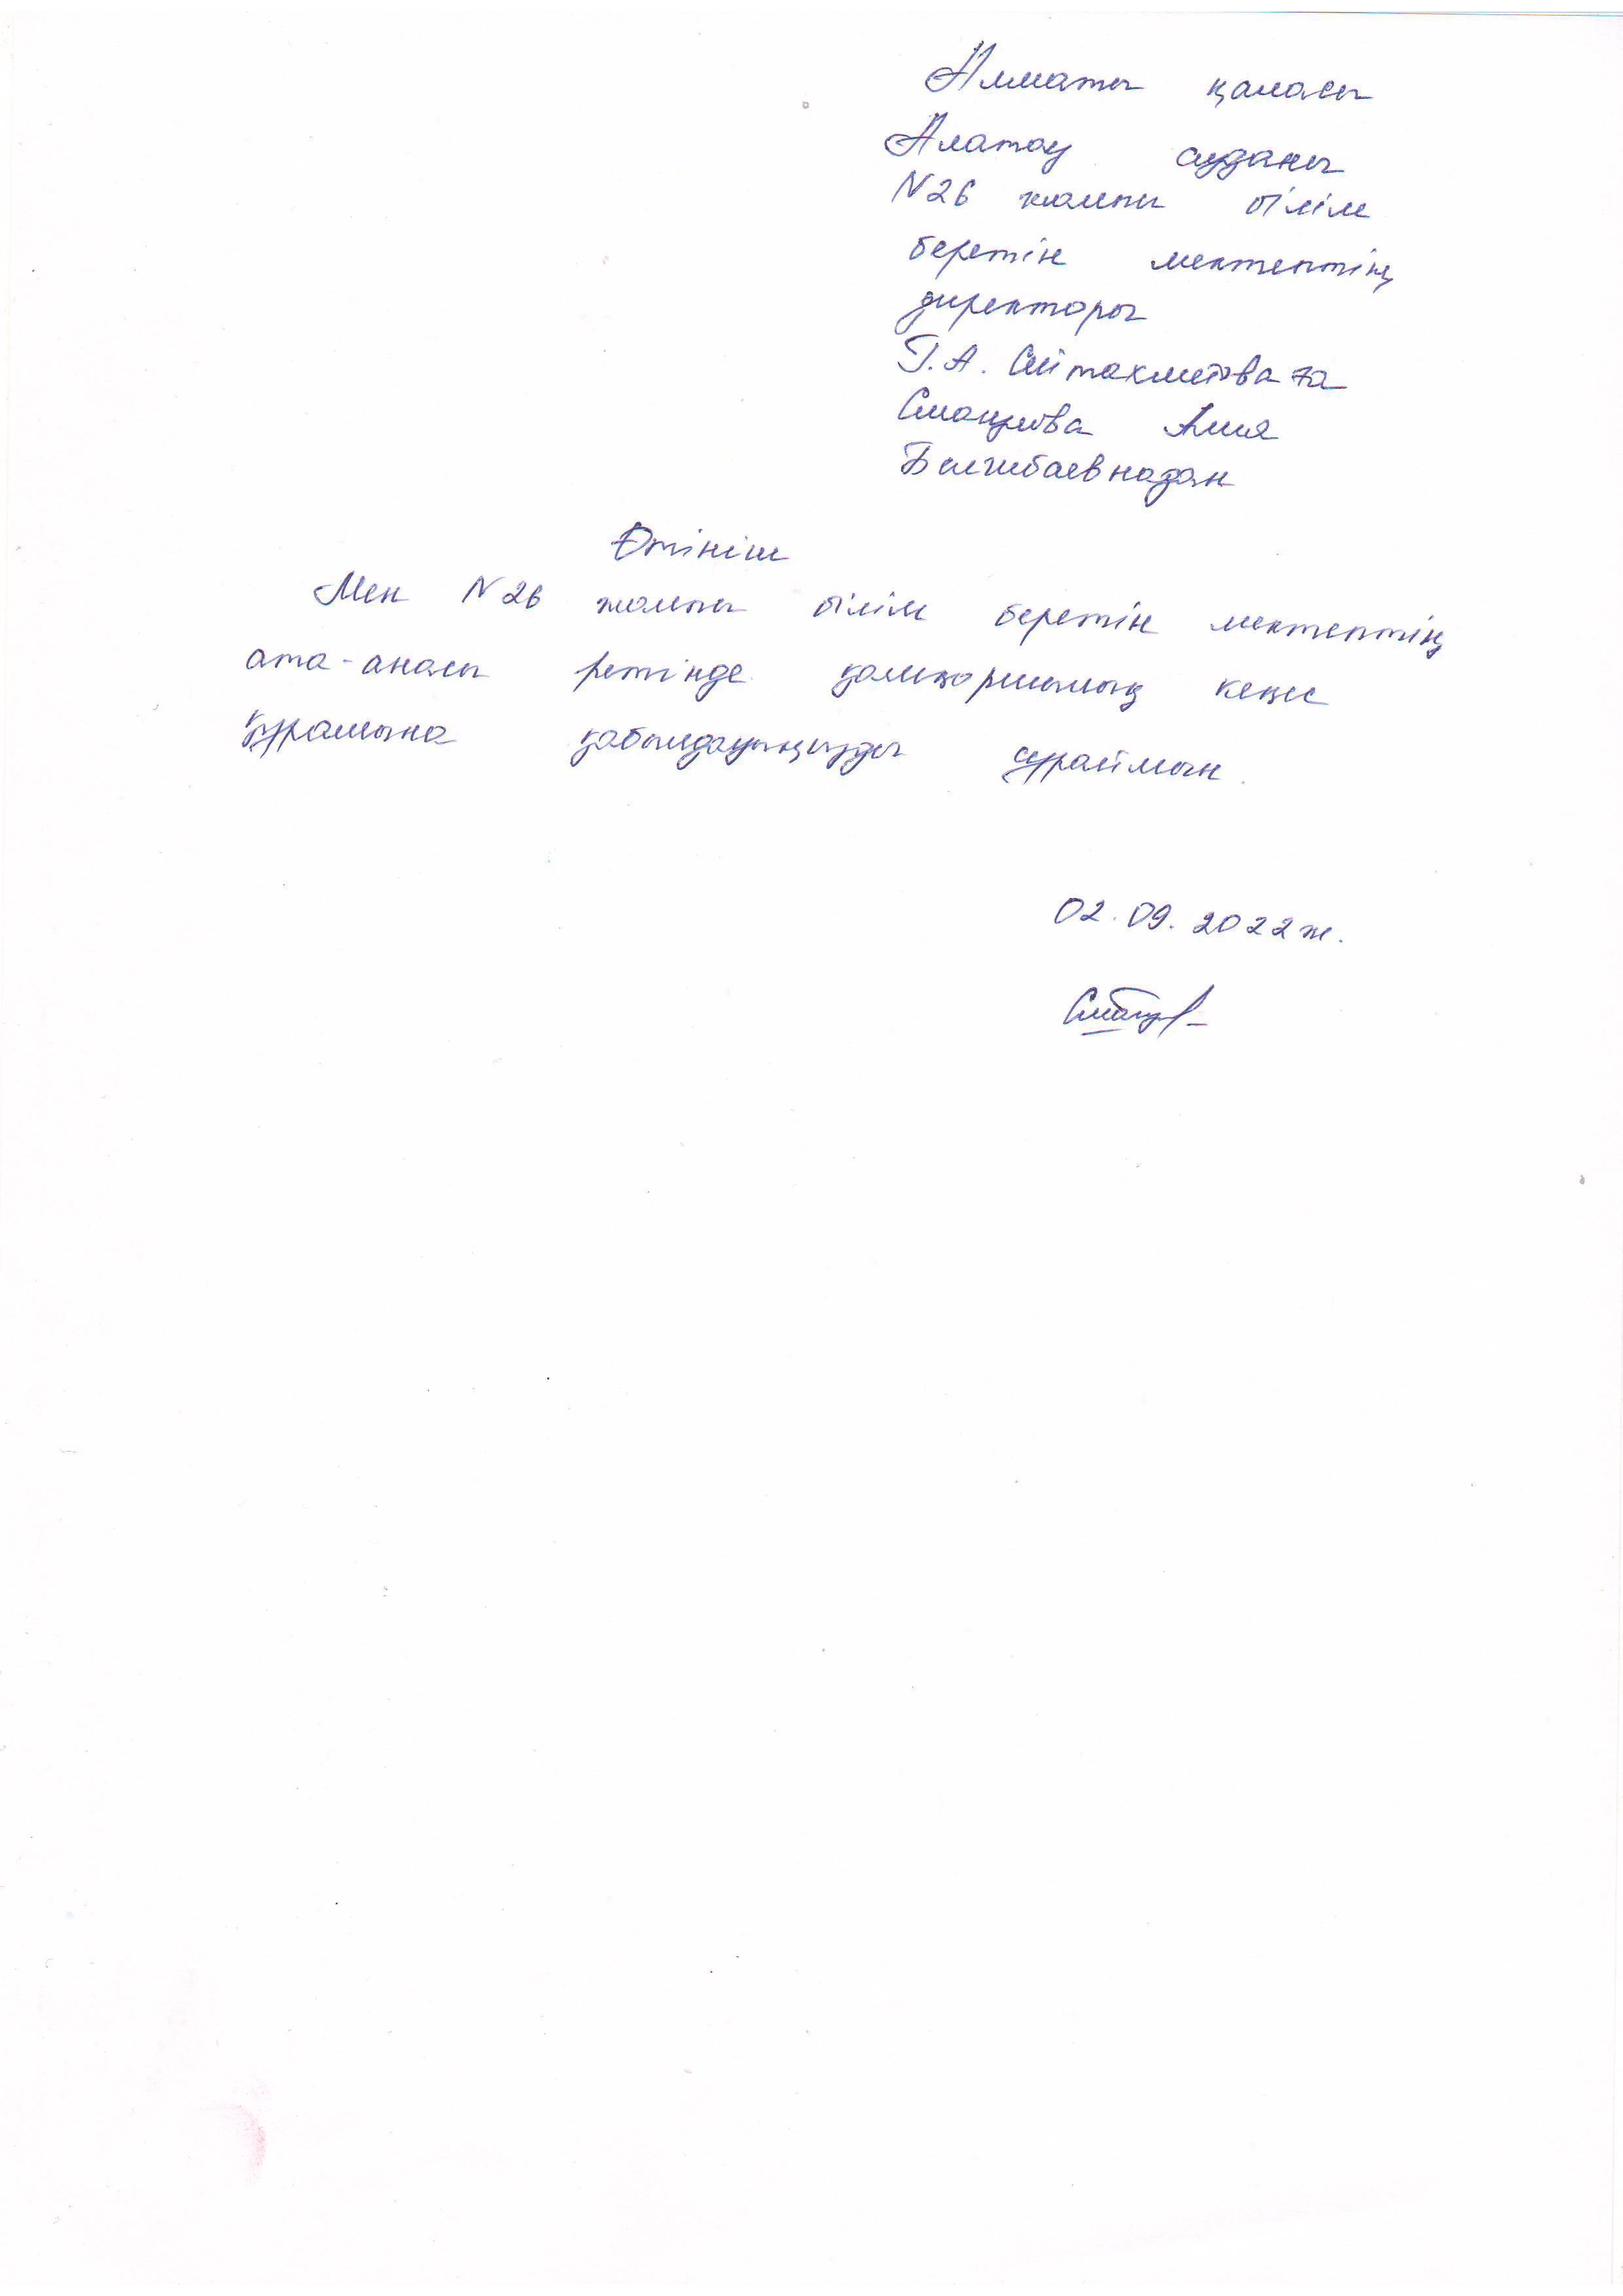 Алматы қаласы
Алатау ауданы
N26 жалпы білім
беретін мектептің
директоры
Г.А. Сейтахметоваға
Смаилова Алия
Балғабаевнадан
Өтініш
Мен N26 жалпы білім беретін мектептің
ата-анасы ретінде қамқоршылық кеңес
құрамына қабылдауыңызды сұраймын.
02.09.2022ж.